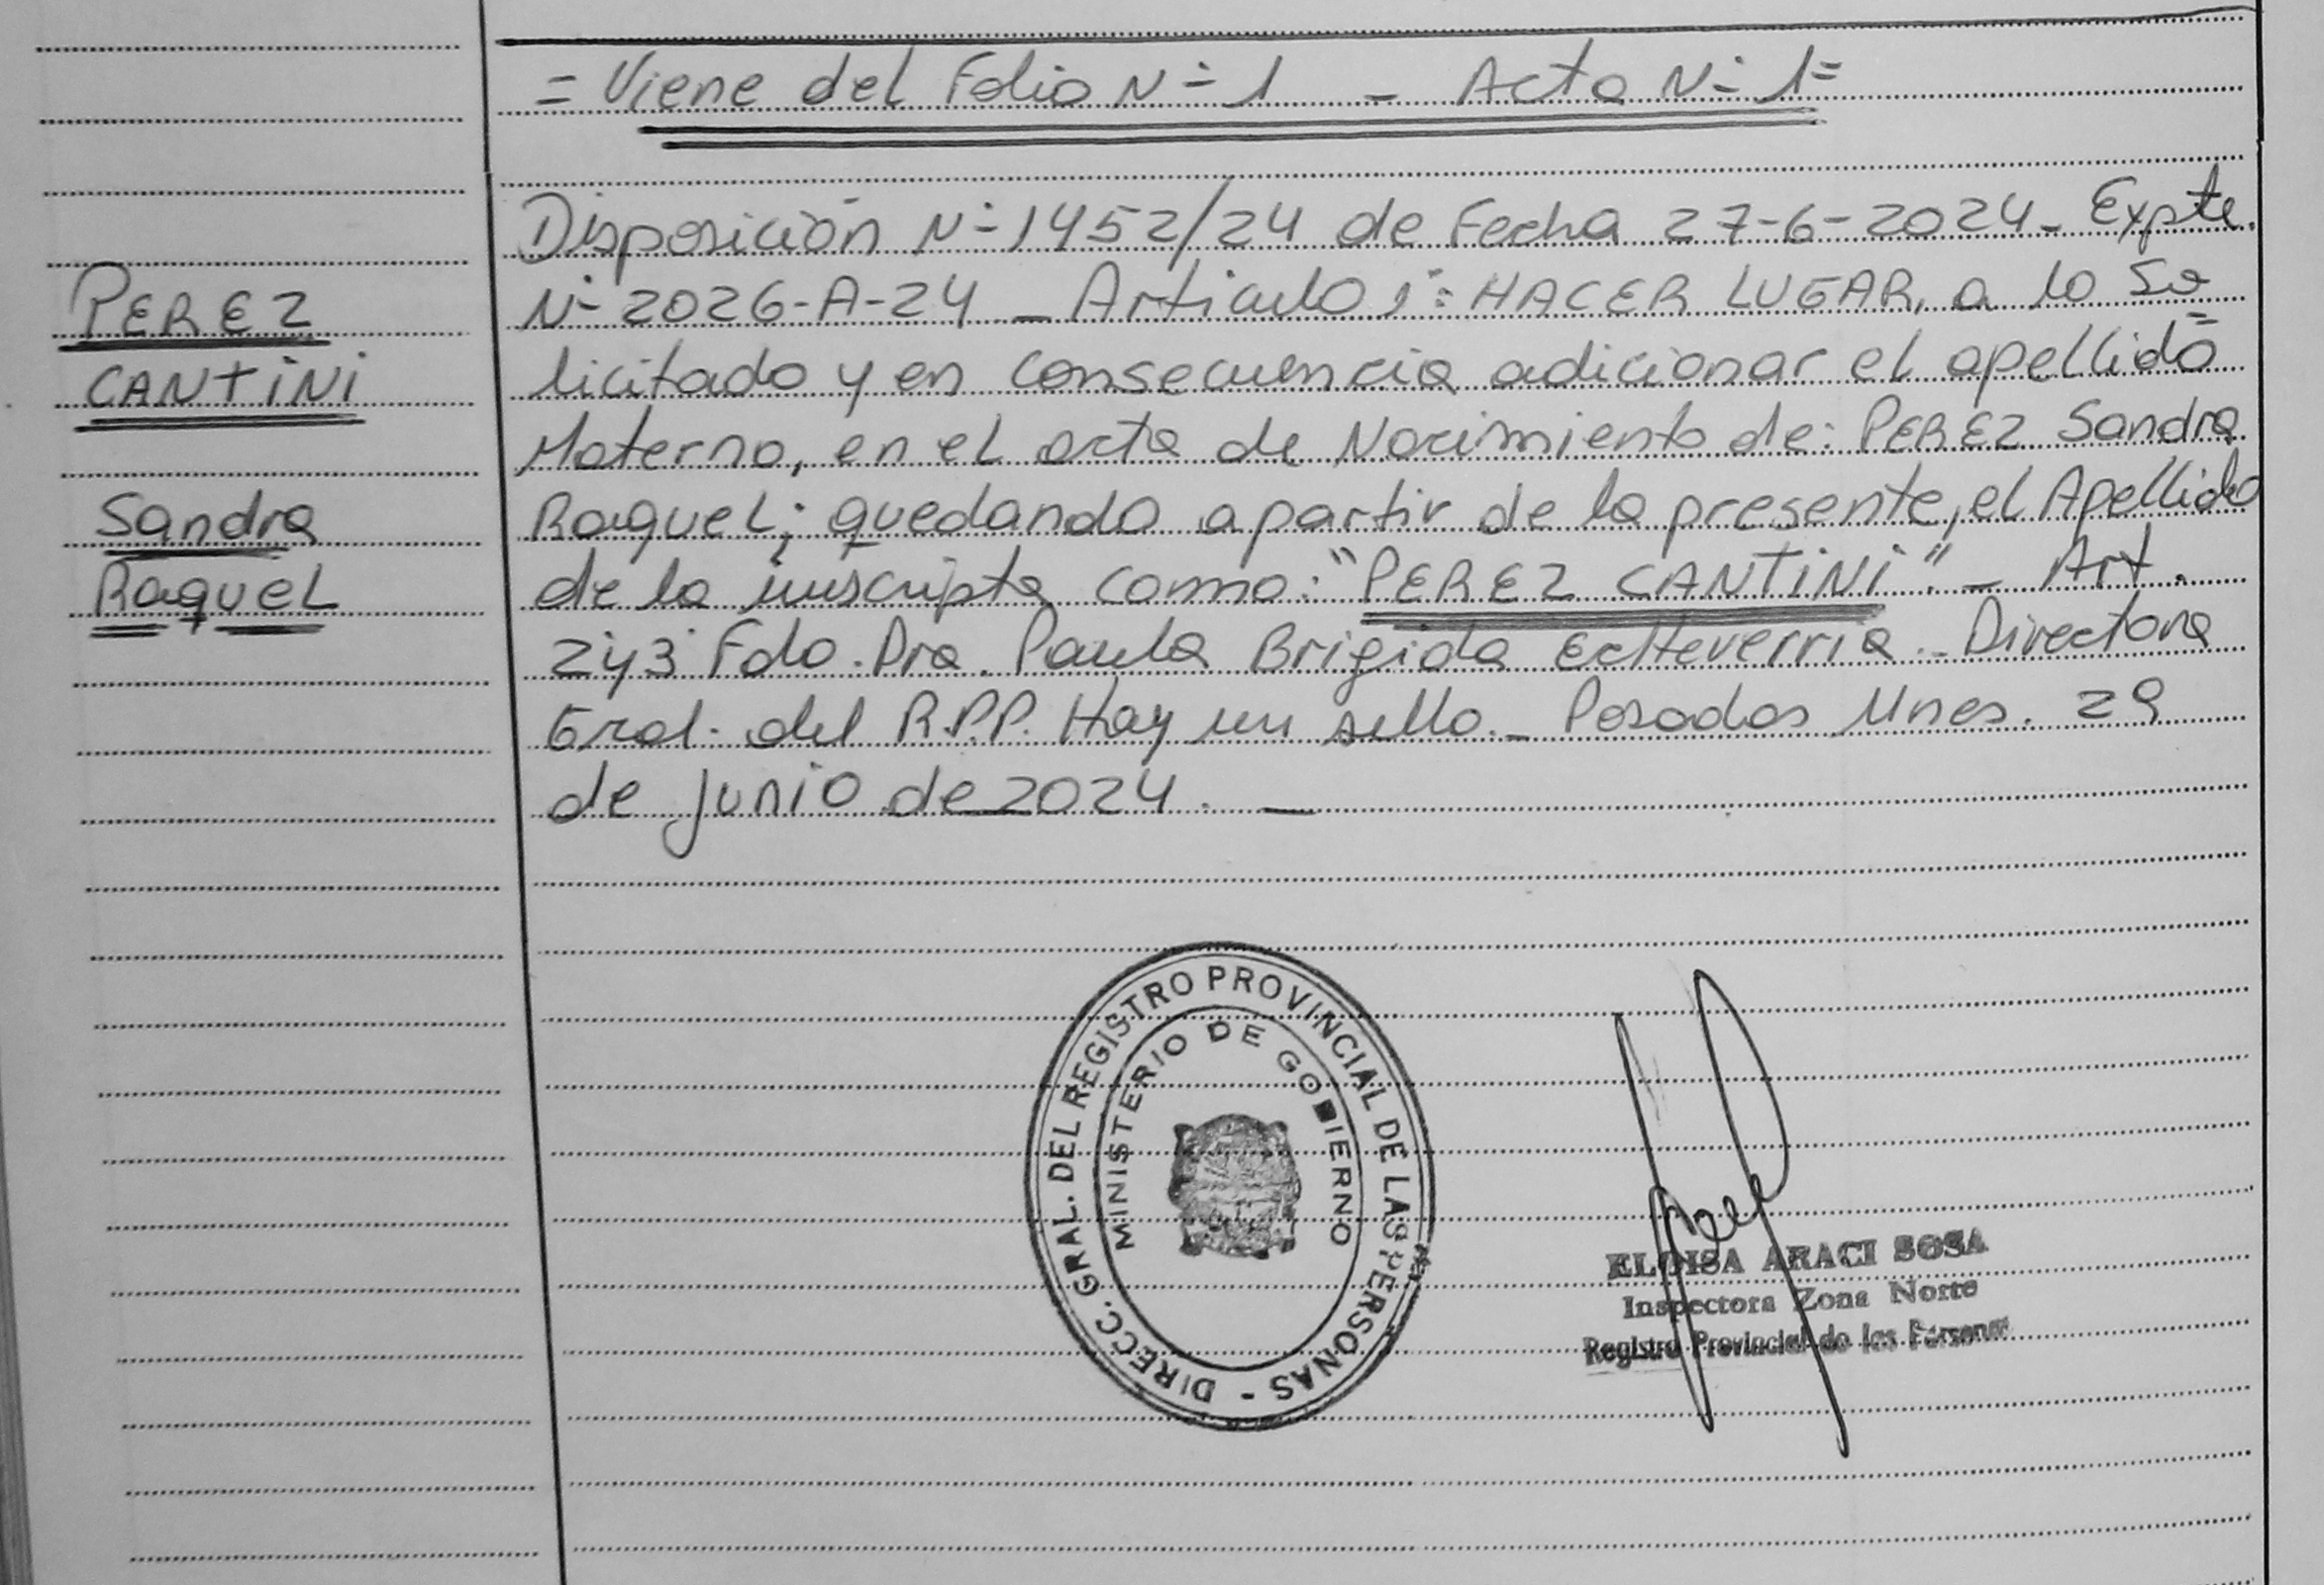 = Viene del Folio N° 1 - Acta N° 1 =
PEREZ
CANTINI
Sandra
Raquel
Disposición N° 1452/24 de Fecha 27-6-2024- Expte.
N° 2026-A-24 _ Articulo 1°: HACER LUGAR, a lo So=
licitado y en consecuencia adicionar el apellido
Materno, en el acta de Nacimiento de: PEREZ Sandra
Raquel; quedando a partir de la presente, el Apellido
de la inscripta como: "PEREZ CANTINI" - Art.
2y3 Fdo. Dra. Paula Brigida Echeverria - Directora
Gral. del R.P.P. Hay un sello. - Posadas Mnes. 29
de junio de 2024. _
DIRECC. GRAL. DEL REGISTRO PROVINCIAL DE LAS PERSONAS -
MINISTERIO DE GOBIERNO
ELOISA ARACI SOSA
Inspectora Zona Norte
Registro Provincial de las Personas